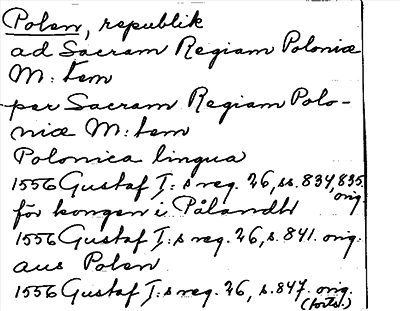 Polen, republik
ad Sacram Regiam Poloniæ
M:tem
per Sacram Regiam Polo-
niæ M:tem
Polonica lingua
1556 Gustaf I:s reg. 26, ss. 834, 835. orig.
för kongen i Pålandh
1556 Gustaf I:s reg. 26, s. 841. orig.
aus Polen
1556 Gustaf I:s reg. 26, s. 847. orig.
(forts.)